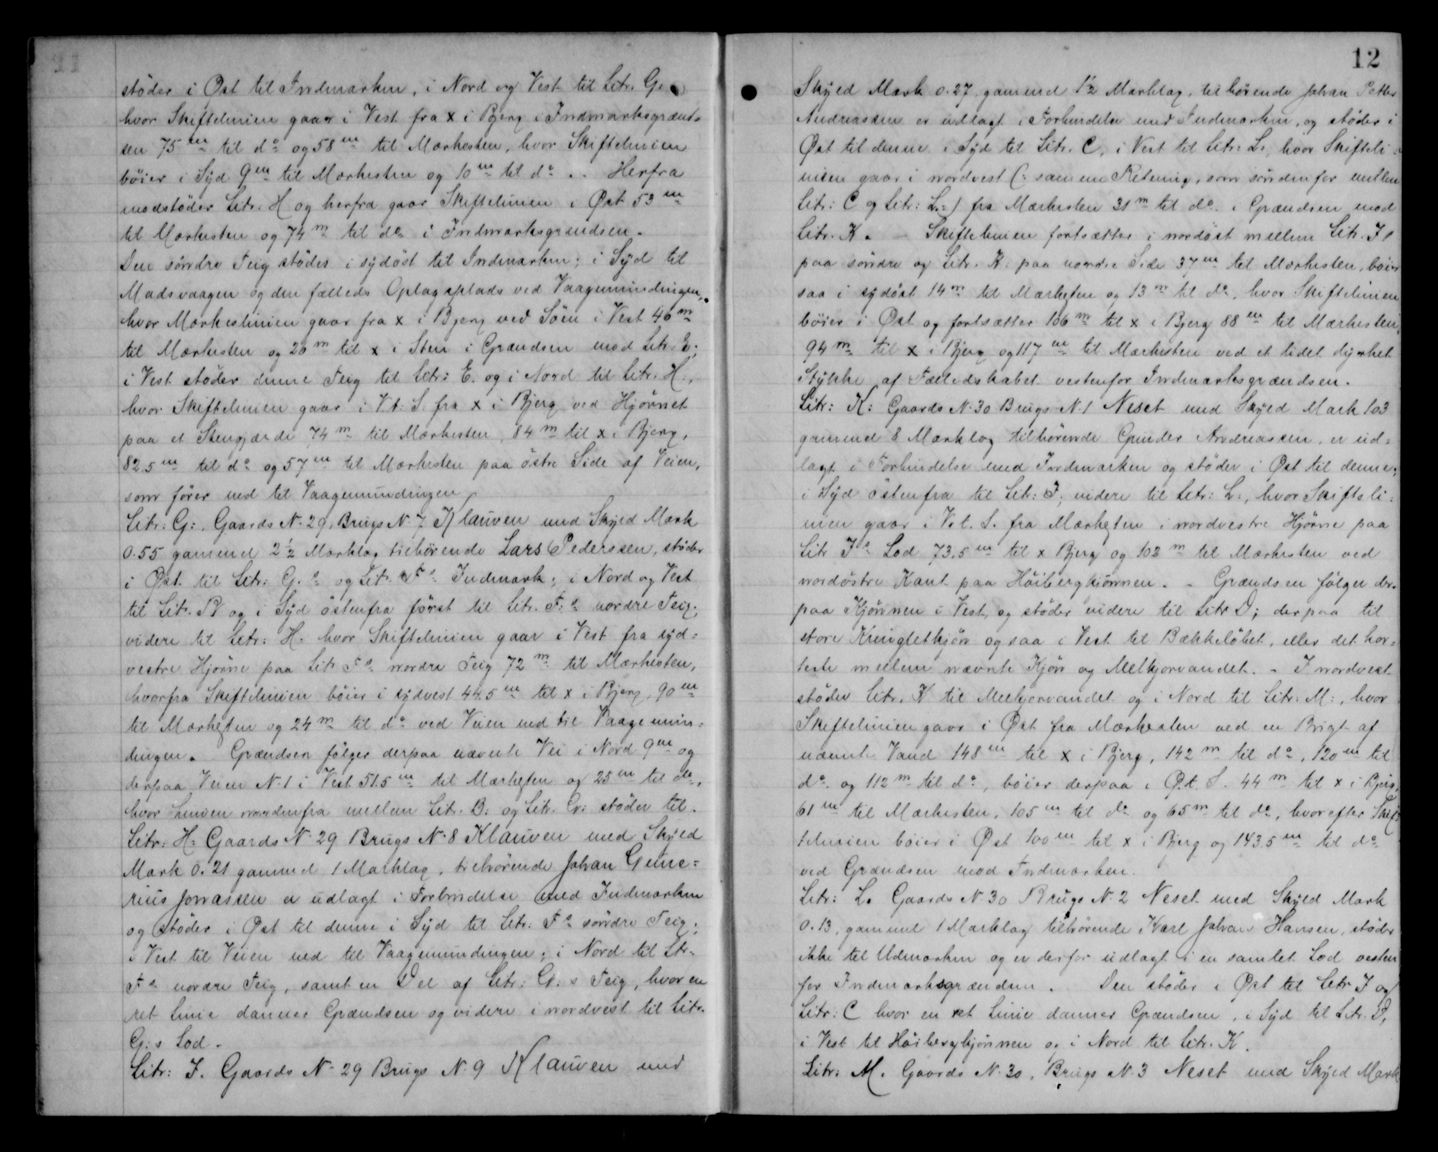 støder i Øst til Indmarken, i Nord og Vest til Litr. G.
hvor Skiftelinien gaar i Vest fra x i Bjerg i Indmarksgrænd-
sen 75 m til do og 58 m til Mærkesten, hvor Skiftelinien
bøier i Syd 9 m til Mærkesten og 10 m til do. - Herfra
modstøder Litr. H og herfra gaar Skiftelinien i Øst 53 m
til Mærkesten og 74 m til do i Indmarksgrændsen.
Den søndre Teig støder i sydøst til Indmarken; i Syd til
Madsvaagen og den fælleds Oplagsplads ved Vaagemundingen,
hvor Mærkeslinien gaar fra x i Bjerg ved Søen i Vest 46 m
til Mærkesten og 26 m til x i Sten i Grændsen mod Litr. E;
i Vest støder denne Teig til Litr: E. og i Nord til Litr. H.,
hvor Skiftelinien gaar i V.t. S. fra x i Bjerg ved Hjørnet
paa et Stengjærde 74 m til Mærkesten, 84 m til x i Bjerg,
82.5 m til do og 57 m til Mærkesten paa østre Side af Veien,
som fører ned til Vaagemundingen
Litr: G:, Gaards No 29, Brugs No 7 Klauven med Skyld Mark
0.55 gammel 2 1/2 Marklag tilhørende Lars Pederssen, støder
i Øst til Litr: G.s og Litr. Fs Indmark; i Nord og Vest
til Litr. B og i Syd østenfra først til Litr. F:s nordre Teig;
videre til Litr: H. hvor Skiftelinien gaar i Vest fra syd-
vestre Hjørne paa Litr Fs nordre Teig 72 m til Mærkesten,
hvorfra Skiftelinien bøier i sydvest 44.5 m til x i Bjerg, 90 m
til Mærkesten og 24 m til do ved Veien ned til Vaagemun-
dingen. Grændsen følger derpaa nævnte Vei i Nord 9 m og
derpaa Veien No 1 i Vest 51.5 m til Mærkesten og 25 m til do,
hvor Linien nordenfra mellem Litr. B: og Litr. G: støder til.
Litr: H: Gaards No 29 Brugs No 8 Klauven med Skyld
Mark 0.21 gammel 1 Marklag, tilhørende Johan Gune-
rius Jonassen er udlagt i Forbindelse med Indmarken
og støder i Øst til denne i Syd til Litr: Fs søndre Teig;
i Vest til Veien ned til Vaagemundingen; i Nord til Litr.
Fs nordre Teig, samt en Del af Litr: G:s Teig, hvor en
ret Linie danner Grændsen og videre i nordvest til Litr.
G:s Lod.
Litr: I. Gaards No 29 Brugs No 9 Klauven med
12
Skyld Mark 0.27 gammel 1 1/2 Marklag, tilhørende Johan Petter
Andreassen er udlagt i Forbindelse med Indmarken, og støder i
Øst til denne i Syd til Litr. C, i Vest til Litr: L:, hvor Skifteli-
nien gaar i nordvest (: samme Retning, som søndenfor mellem
Litr: C og Litr: L:) fra Mærkesten 31 m til do. i Grændsen mod
Litr. K. - Skiftelinien fortsætter i nordøst mellem Litr. I
paa søndre og Litr. K. paa nordre Side 37 m til Mærkesten, bøier
saa i sydøst 14 m til Mærkesten og 13 m til do, hvor Skiftelinien
bøier i Øst og fortsætter 106 m til x i Bjerg 88 m til Mærkesten,
94 m til x i Bjerg og 117 m til Mærkesten ved et lidet dyrket
Stykke af Fælledskabet vestenfor Indmarksgrændsen.
Litr: K: Gaards No 30 Brugs No 1 Neset med Skyld Mark 1.03
gammel 8 Marklag tilhørende Andreassen, er ud-
lagt i Forbindelse med Indmarken og støder i Øst til denne;
i Syd østenfra til Litr: I; videre til Litr: L:, hvor Skifteli-
nien gaar i V.t. S. fra Mærkesten i nordvestre Hjørne paa
Litr Is Lod 73.5 m til x Bjerg og 102 m til Mærkesten ved
nordøstre Kant paa Høibergkjønnen. - Grændsen følger der-
paa Kjønnen i Vest, og støder videre til Litr D; derpaa til
store Kringletkjøn og saa i Vest til Bækkeløbet, eller det kor-
teste mellem nævnte Kjøn og Melkjorvandet. - I nordvest
støder Litr. K til Melkjorvandet og i Nord til Litr. M:, hvor
Skiftelinien gaar i Øst fra Mærkesten ved en Brigt af
nævnte Vand 148 m til x i Bjerg, 142 m til do, 120 m til
do. og 112 m til do, bøier derpaa i Ø.t. S. 44 m til x i Bjerg,
61 m til Mærkesten, 105 m til do og 65 m til do, hvorefter Skif-
telinien bøier i Øst 100 m til x i Bjerg og 143.5 m til do
ved Grændsen mod Indmarken.
Litr: L. Gaards No 30 Brugs No 2 Neset med Skyld Mark
0.13, gammel 1 Marklag tilhørende Karl Johan Hansen, støder
ikke til Udmarken og er derfor udlagt i en samlet Lod vesten
for Indmarksgrændsen. Den støder i Øst til Litr I og
Litr: C hvor en ret Linie danner Grændsen, i Syd til Litr. D,
i Vest til Høibergkjønnen og i Nord til Litr. K.
Litr: M. Gaards No 30, Brugs No 3 Neset med Skyld Mark